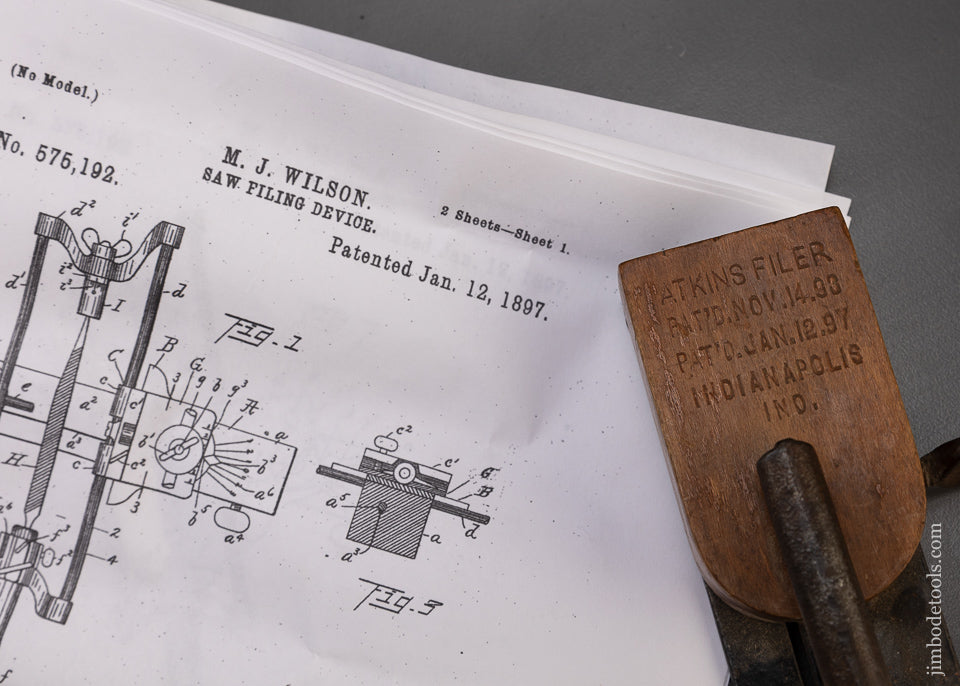 (No Model.)
No. 575,192.
M. J. WILSON.
SAW FILING DEVICE.
2 Sheets—Sheet 1.
Patented Jan. 12, 1897.
Fig. 1
d² i'
i² I
d' d
C B
3 G g b g³
e c A
a² c' a
b' b³
a³ c c² a⁶
H b⁵
3 a⁴
2
f 4
f
c²
c'
G
B
a⁵
d
a
a³
Fig. 3
ATKINS FILER
PAT'D. NOV. 14. 93
PAT'D. JAN. 12. 97
INDIANAPOLIS
IND.
jimbodetools.com